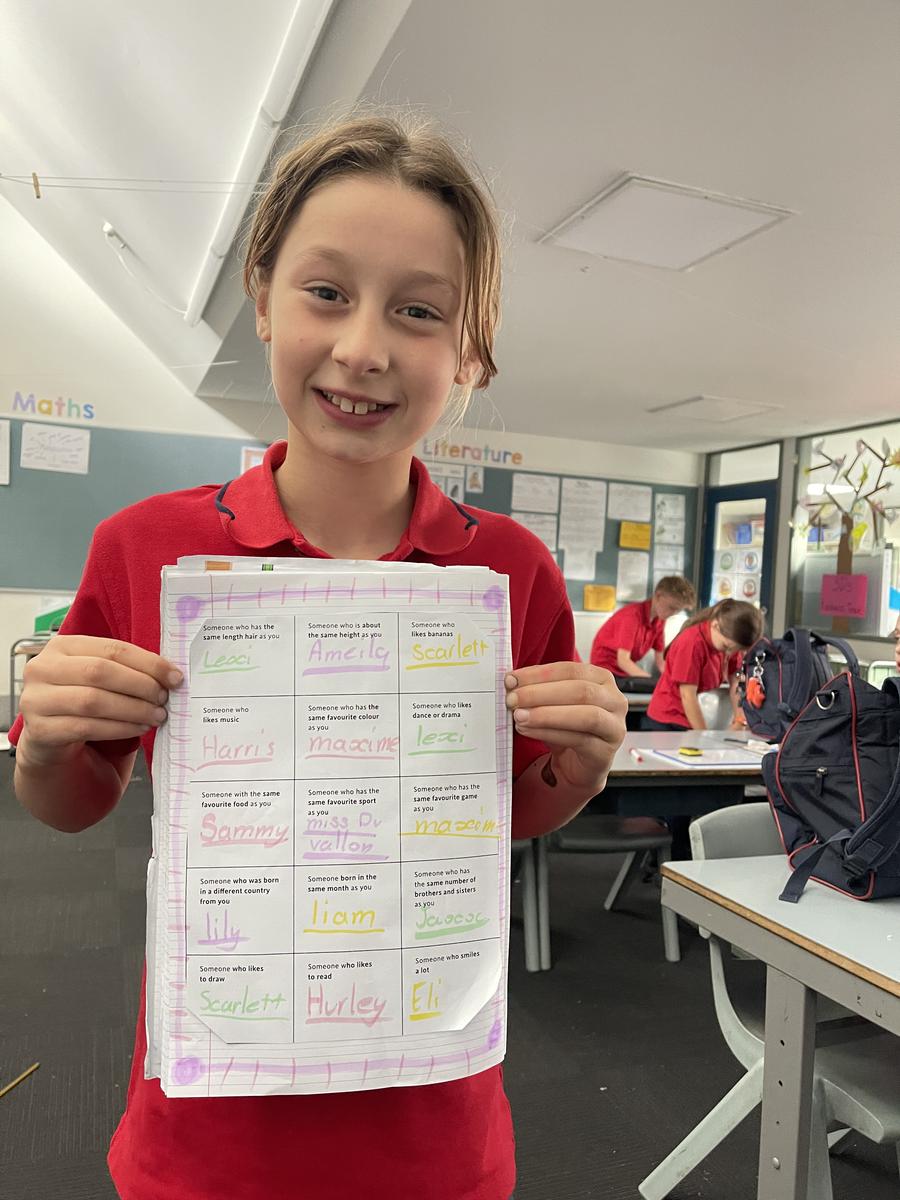 Maths
Literature
Someone who has the
same length hair as you
Lexi
Someone who is about
the same height as you
Ameila
Someone who
likes bananas
Scarlett
Someone who
likes music
Harris
Someone who has the
same favourite colour
as you
maxime
Someone who likes
dance or drama
lexi
Someone with the same
favourite food as you
Sammy
Someone who has the
same favourite sport
as you
miss Du
vallon
Someone who has the
same favourite game
as you
maxim
Someone who was born
in a different country
from you
lily
Someone born in the
same month as you
liam
Someone who has
the same number of
brothers and sisters
as you
Someone who likes
to draw
Scarlett
Someone who likes
to read
Hurley
Someone who smiles
a lot
Eli